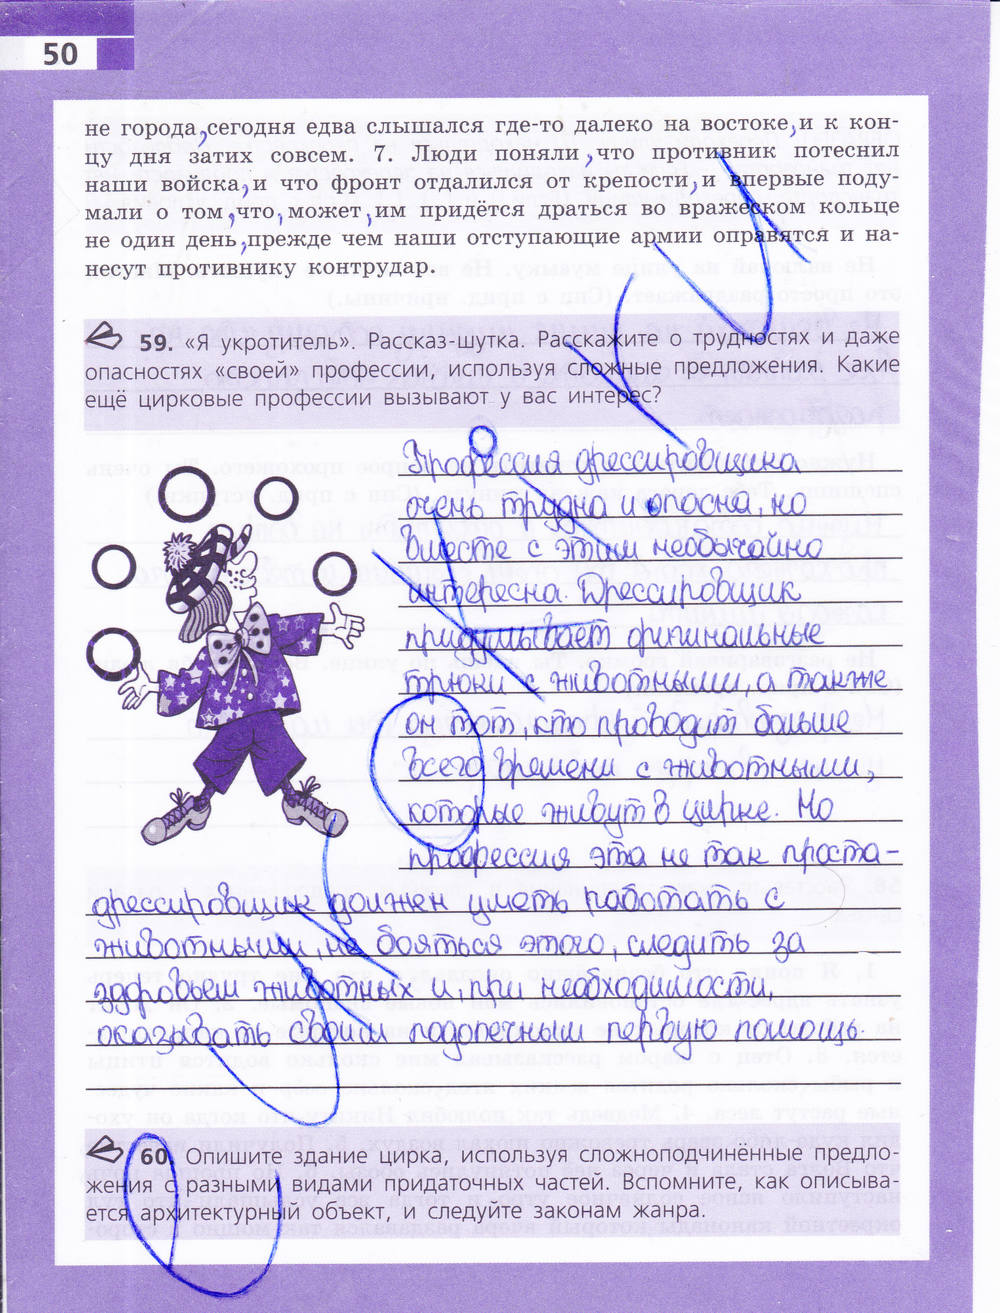 50
не города, сегодня едва слышался где-то далеко на востоке, и к кон-
цу дня затих совсем. 7. Люди поняли, что противник потеснил
наши войска, и что фронт отдалился от крепости, и впервые поду-
мали о том, что, может, им придётся драться во вражеском кольце
не один день, прежде чем наши отступающие армии оправятся и на-
несут противнику контрудар.
59. «Я укротитель». Рассказ-шутка. Расскажите о трудностях и даже
опасностях «своей» профессии, используя сложные предложения. Какие
ещё цирковые профессии вызывают у вас интерес?
Профессия дрессировщика
очень трудна и опасна, но
вместе с этим необычайно
интересна. Дрессировщик
придумывает оригинальные
трюки с животными, а также
он тот, кто проводит больше
всего времени с животными,
которые живут в цирке. Но
профессия эта не так проста-
дрессировщик должен уметь работать с
животными, не бояться этого, следить за
здоровьем животных и, при необходимости,
оказывать своим подопечным первую помощь.
60. Опишите здание цирка, используя сложноподчинённые предло-
жения с разными видами придаточных частей. Вспомните, как описыва-
ется архитектурный объект, и следуйте законам жанра.